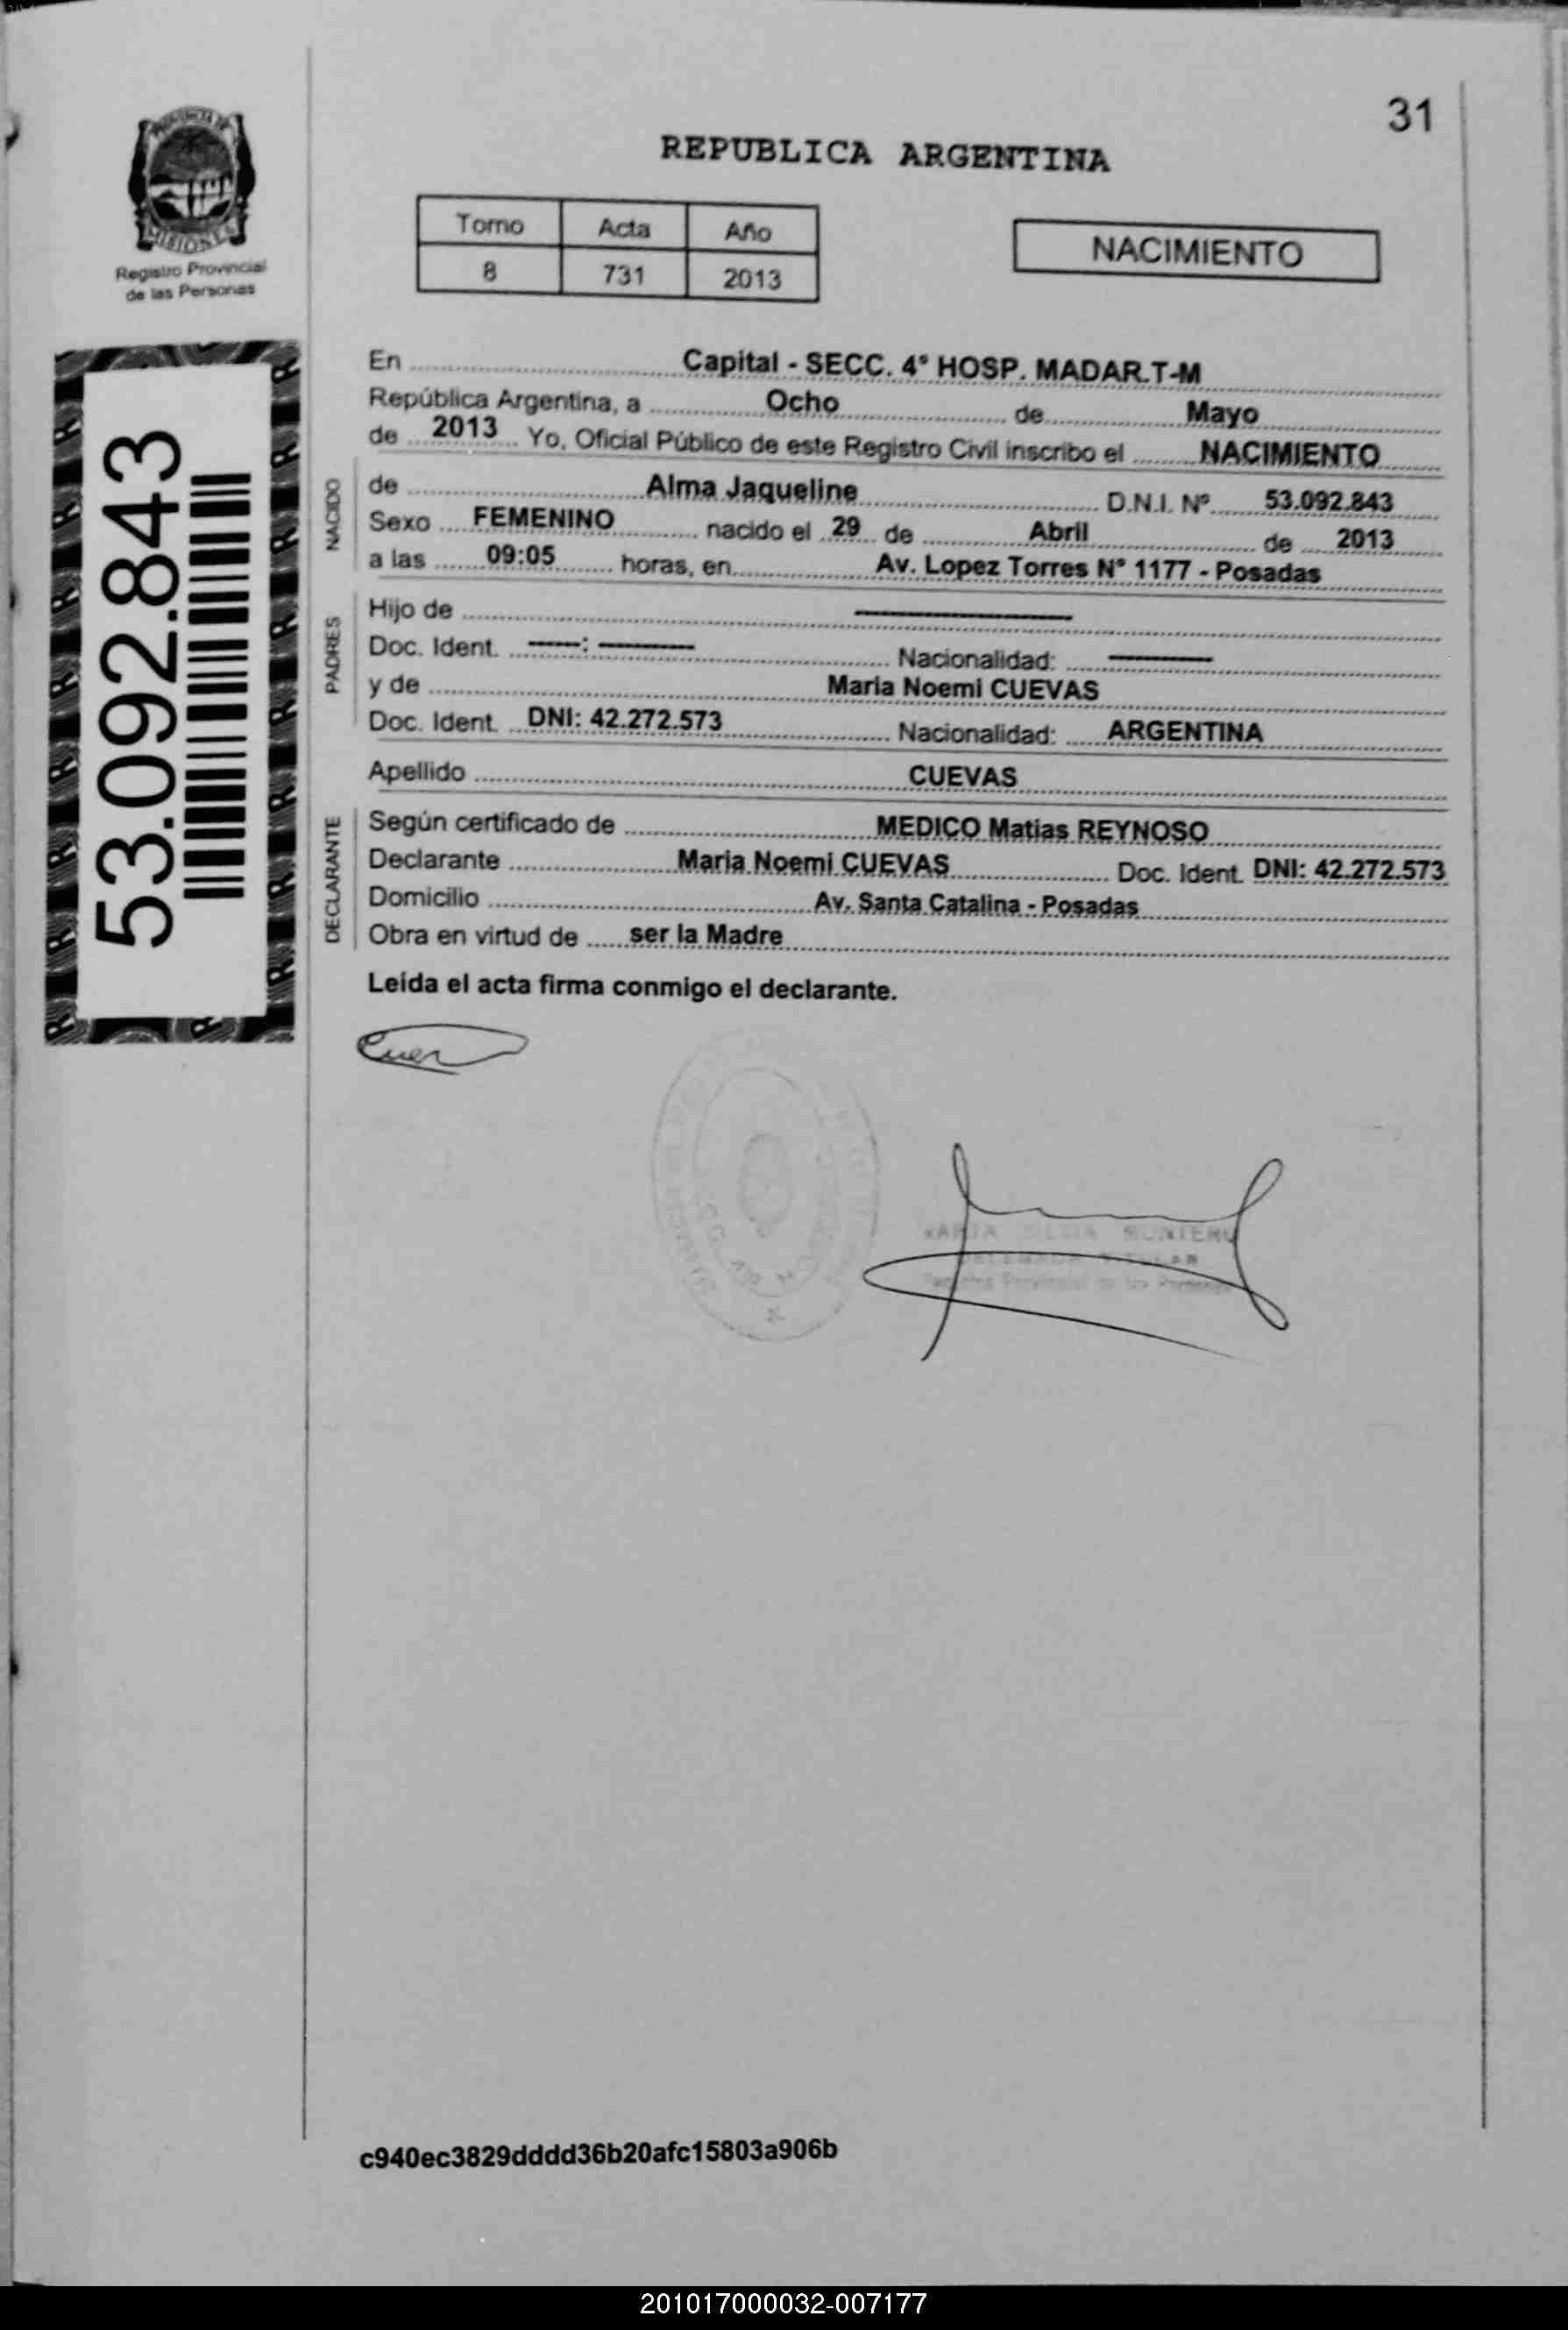 31
PROVINCIA DE
MISIONES
Registro Provincial
de las Personas
REPUBLICA ARGENTINA
Tomo Acta Año
8 731 2013
NACIMIENTO
53.092.843
En Capital - SECC. 4° HOSP. MADAR.T-M
República Argentina, a Ocho de Mayo
de 2013 Yo, Oficial Público de este Registro Civil inscribo el NACIMIENTO
NACIDO
de Alma Jaqueline D.N.I. Nº 53.092.843
Sexo FEMENINO nacido el 29 de Abril de 2013
a las 09:05 horas, en Av. Lopez Torres N° 1177 - Posadas
PADRES
Hijo de
Doc. Ident. : Nacionalidad:
y de Maria Noemi CUEVAS
Doc. Ident. DNI: 42.272.573 Nacionalidad: ARGENTINA
Apellido CUEVAS
DECLARANTE
Según certificado de MEDICO Matias REYNOSO
Declarante Maria Noemi CUEVAS Doc. Ident. DNI: 42.272.573
Domicilio Av. Santa Catalina - Posadas
Obra en virtud de ser la Madre
Leida el acta firma conmigo el declarante.
c940ec3829dddd36b20afc15803a906b
201017000032-007177